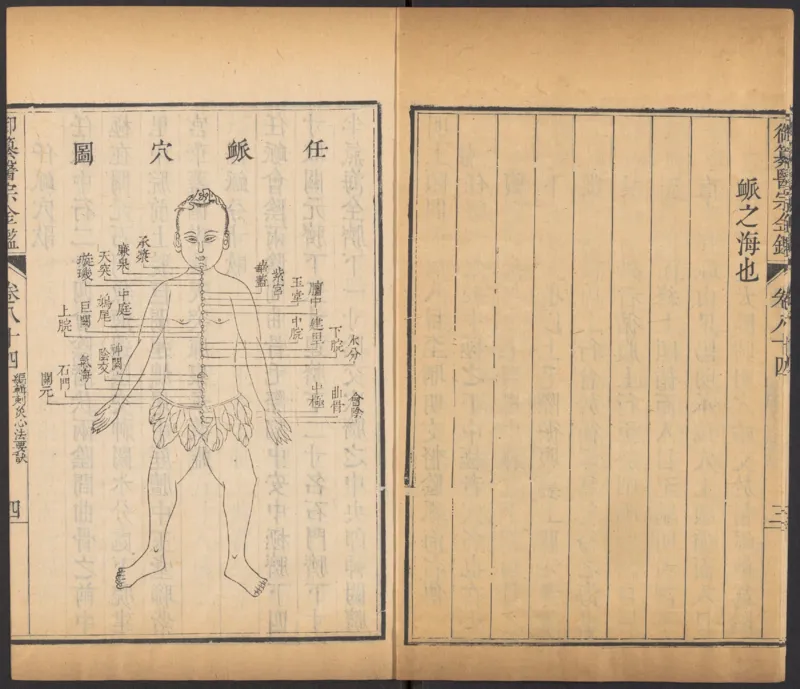 脈之海也
御纂醫宗金鑑
卷八十四
三
任脈穴圖
承漿
廉泉
天突
璇璣
華蓋
紫宮
玉堂
膻中
中庭
鳩尾
巨闕
上脘
中脘
建里
下脘
水分
神闕
陰交
氣海
石門
關元
中極
曲骨
會陰
御纂醫宗金鑑
卷八十四
編輯刺灸心法要訣
四